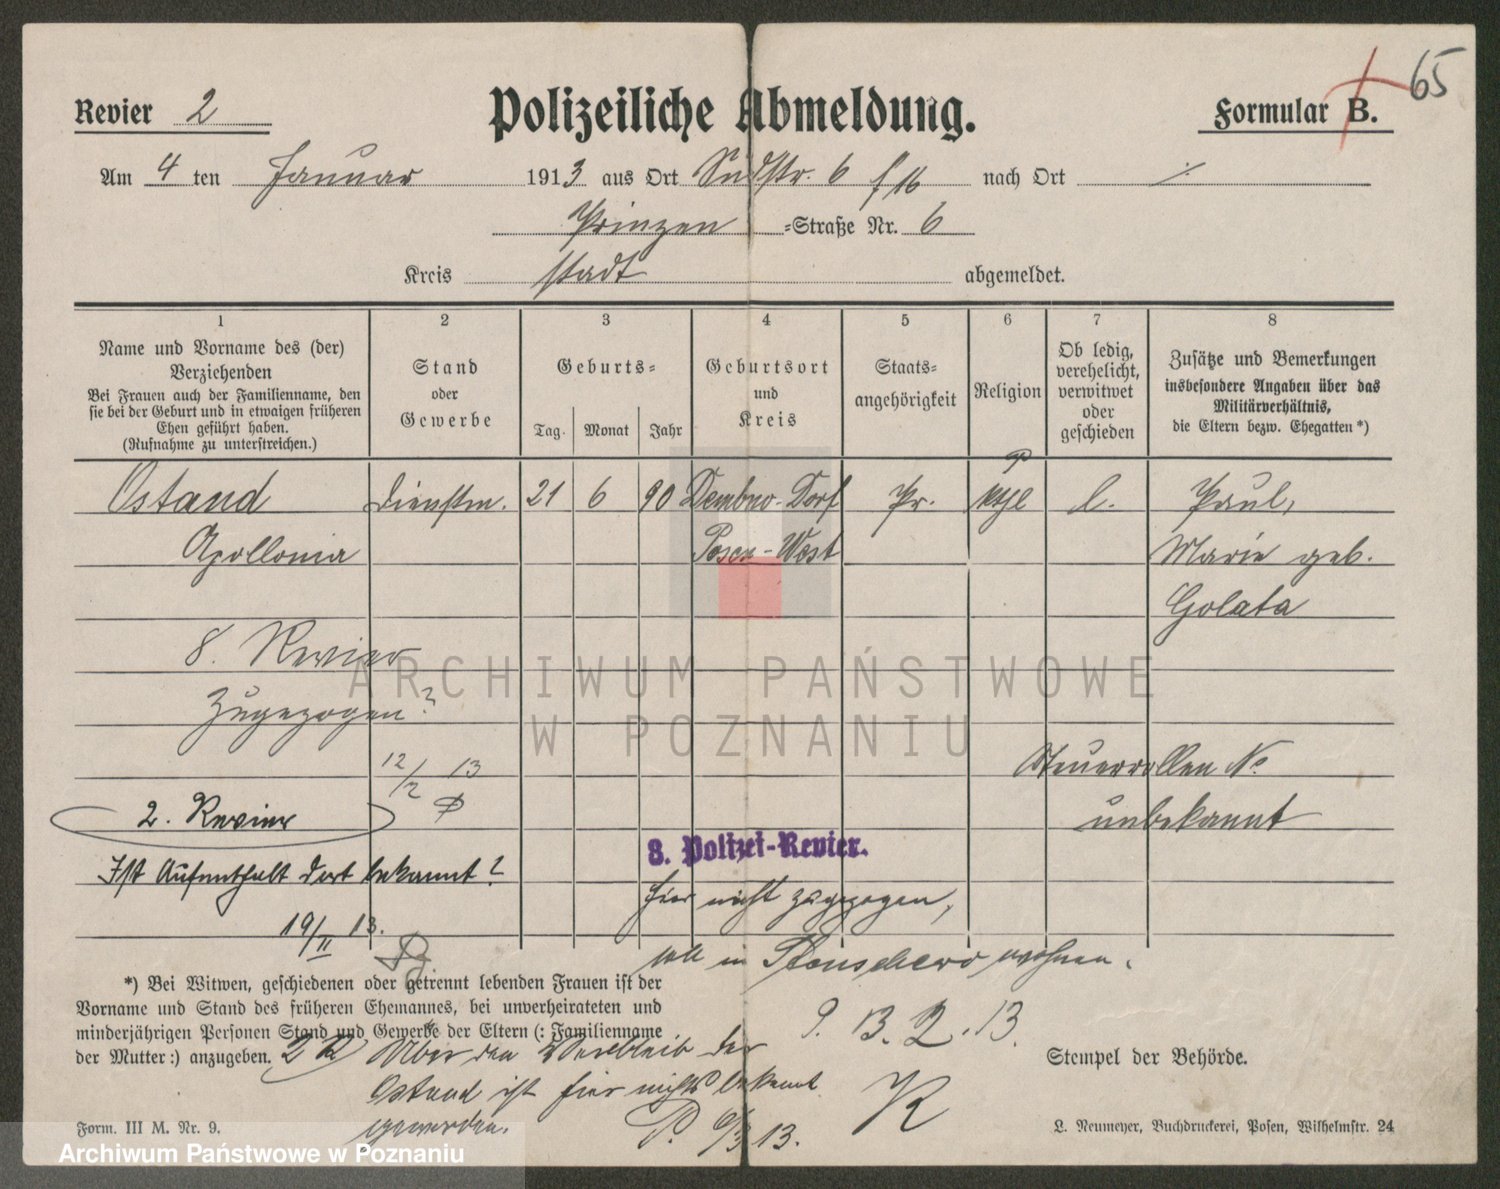 65
Revier 2 Polizeiliche Abmeldung. Formular B.
Am 4 ten Januar 1913 aus Ort Südstr. 6 nach Ort ./.
Prinzen =Straße Nr. 6
Kreis Stadt abgemeldet.
1 2 3 4 5 6 7 8
Name und Vorname des (der)
Verziehenden
Bei Frauen auch der Familienname, den
sie bei der Geburt und in etwaigen früheren
Ehen geführt haben.
(Rufnahme zu unterstreichen.)
Stand
oder
Gewerbe
Geburts=
Tag. Monat Jahr
Geburtsort
und
Kreis
Staats=
angehörigkeit
Religion
Ob ledig,
verehelicht,
verwitwet
oder
geschieden
Zusätze und Bemerkungen
insbesondere Angaben über das
Militärverhältnis,
die Eltern bezw. Ehegatten *)
Ostand Dienstm. 21 6 90 Dembno-Dorf Pr. kthl l. Paul,
Apollonia Posen-West Marie geb.
Golata
8. Revier
Zugezogen?
12/2 13
Steuerrollen No
unbekannt
2. Revier
8. Polizei-Revier.
Ist Aufenthalt dort bekannt?
hier nicht zugezogen,
19/II 13.
soll in wohnen.
9. 13. 2. 13.
*) Bei Witwen, geschiedenen oder getrennt lebenden Frauen ist der
Vorname und Stand des früheren Ehemannes, bei unverheirateten und
minderjährigen Personen Stand und Gewerbe der Eltern (: Familienname
der Mutter:) anzugeben.
2 R Über den Verbleib der
Ostand ist hier nichts bekannt
geworden.
P. 9/3 13.
K
Stempel der Behörde.
Form. III M. Nr. 9.
L. Neumeyer, Buchdruckerei, Posen, Wilhelmstr. 24
ARCHIWUM PAŃSTWOWE
W POZNANIU
Archiwum Państwowe w Poznaniu